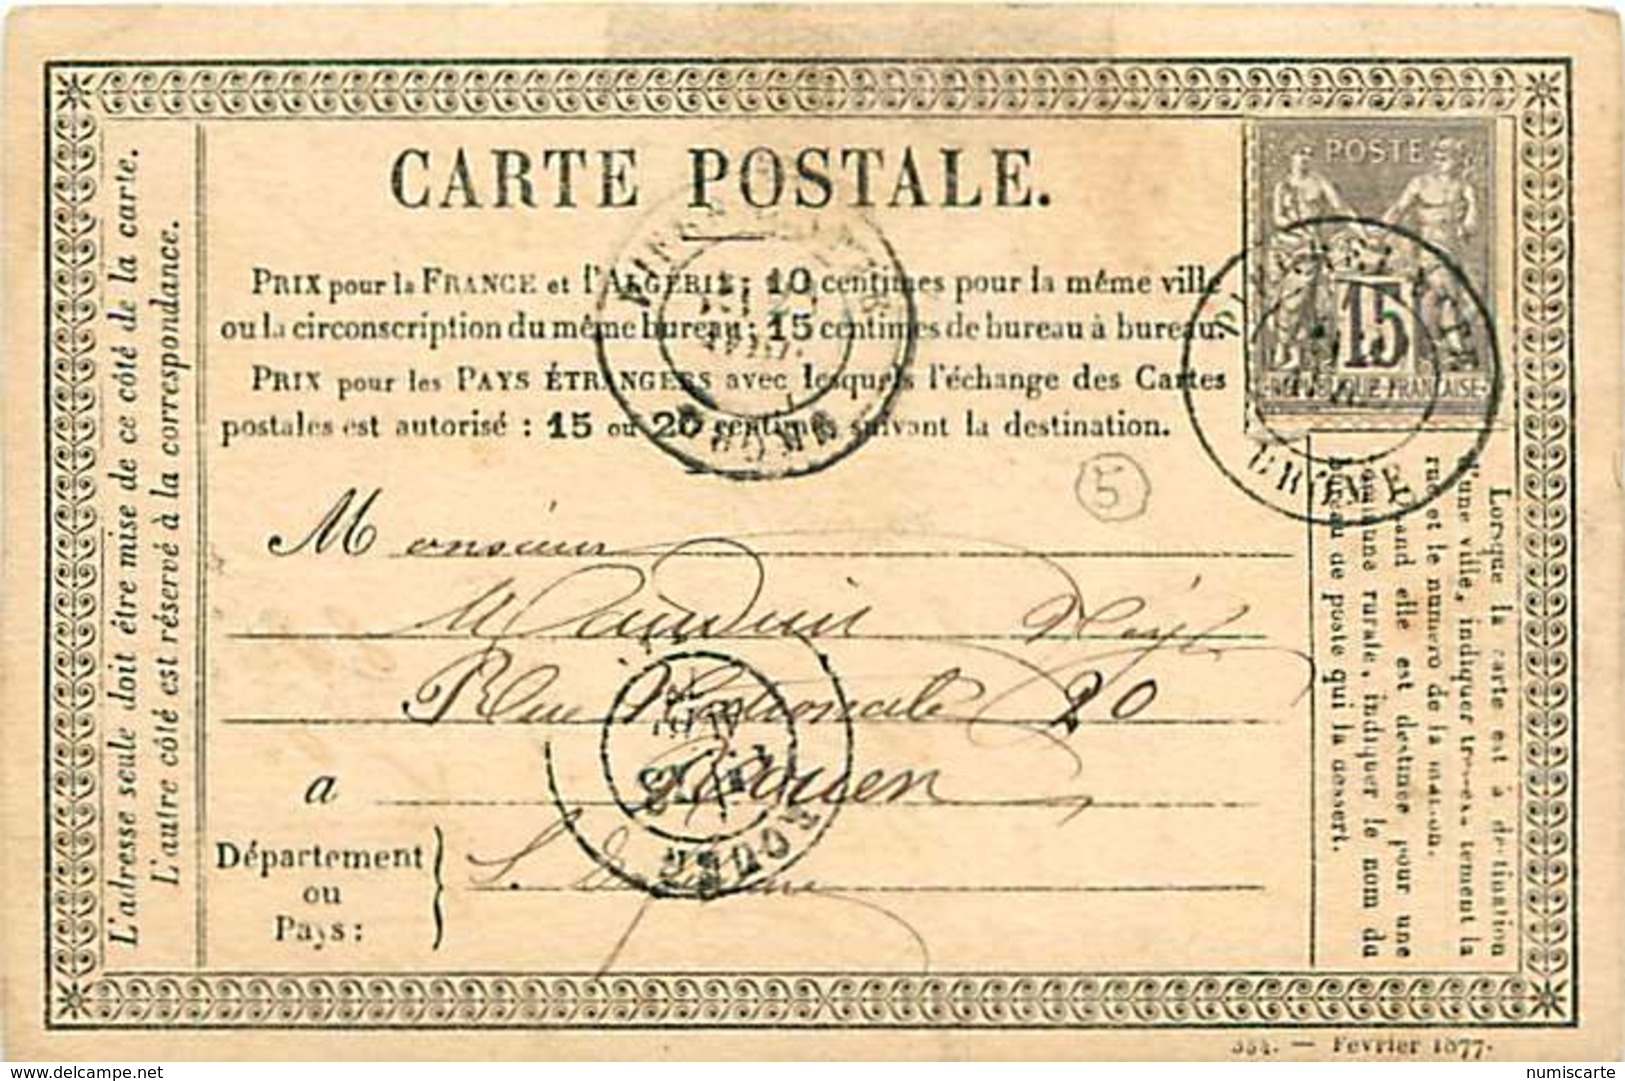 CARTE POSTALE.
PRIX pour la FRANCE et l'ALGÉRIE: 10 centimes pour la même ville
ou la circonscription du même bureau; 15 centimes de bureau à bureau.
PRIX pour les PAYS ÉTRANGERS avec lesquels l'échange des Cartes
postales est autorisé : 15 ou 20 centimes suivant la destination.
POSTE
15
REPUBLIQUE FRANÇAISE
DIEULEFIT
DROME
DROME
5
Monsieur
Rue Nationale 20
a Rouen
ROUEN
Département
ou
Pays :
S.
L'adresse seule doit être mise de ce côté de la carte.
L'autre côté est réservé à la correspondance.
Lorsque la carte est à destination
d'une ville, indiquer très-exactement la
rue et le numero de la maison.
Quand elle est destinée pour une
commune rurale, indiquer le nom du
bureau de poste qui la dessert.
354. — Fevrier 1877.
delcampe.net
numiscarte